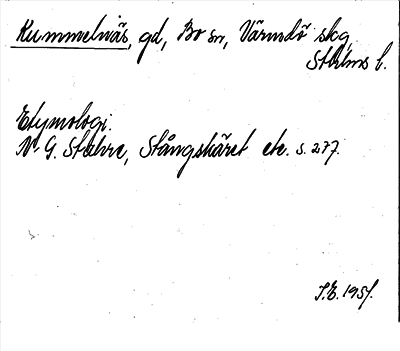 Kummelnäs, gd, Bo sn, Värmdö skg
Sthlms l.
Etymologi.
N. G. Stahre, Stångskäret etc. s. 277.
S.E. 1951.